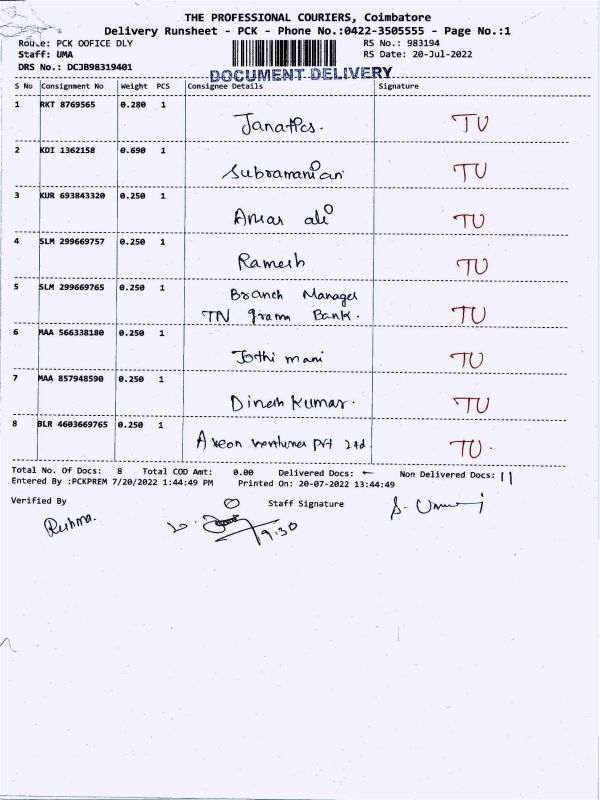 THE PROFESSIONAL COURIERS, Coimbatore
Delivery Runsheet - PCK - Phone No.:0422-3505555 - Page No.:1
Route: PCK OOFICE DLY RS No.: 983194
Staff: UMA RS Date: 20-Jul-2022
DRS No.: DCJB98319401
DOCUMENT DELIVERY
S No Consignment No Weight PCS Consignee Details Signature
1 RKT 8769565 0.280 1
Janatics. TU
2 KDI 1362158 0.690 1
Subramanian TU
3 KUR 693843320 0.250 1
Amar ali TU
4 SLM 299669757 0.250 1
Ramesh TU
5 SLM 299669765 0.250 1
Branch Manager
TN gramn Bank. TU
6 MAA 566338180 0.250 1
Jothi mani TU
7 MAA 857948590 0.250 1
Dinesh Kumar. TU
8 BLR 4603669765 0.250 1
Axeon Pvt Ltd TU.
Total No. Of Docs: 8 Total COD Amt: 0.00 Delivered Docs: – Non Delivered Docs: 11
Entered By :PCKPREM 7/20/2022 1:44:49 PM Printed On: 20-07-2022 13:44:49
Verified By Staff Signature
9.30